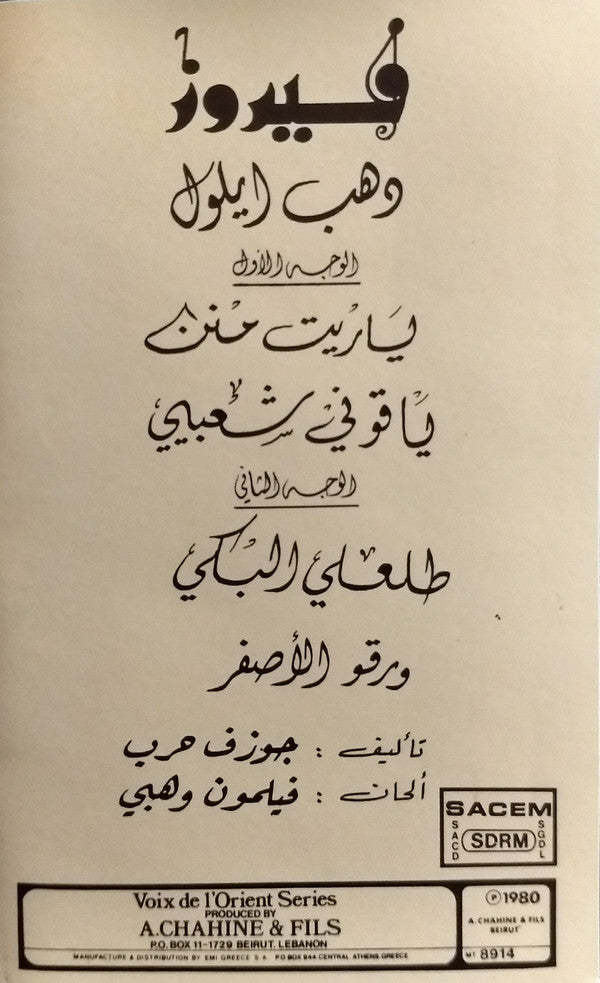 فيروز
دهب ايلول
الوجه الأول
ياريت منن
ياقوني شعبيي
الوجه الثاني
طلعلي البكي
ورقو الأصفر
تأليف : جوزف حرب
ألحان : فيلمون وهبي
SACEM
SACD SDRM SGDL
Voix de l'Orient Series
PRODUCED BY
A.CHAHINE & FILS
P.O. BOX 11-1729 BEIRUT. LEBANON
MANUFACTURE & DISTRIBUTION BY EMI GREECE S.A. P.O BOX 944 CENTRAL ATHENS GREECE
Ⓟ1980
A. CHAHINE & FILS
BEIRUT
MT 8914